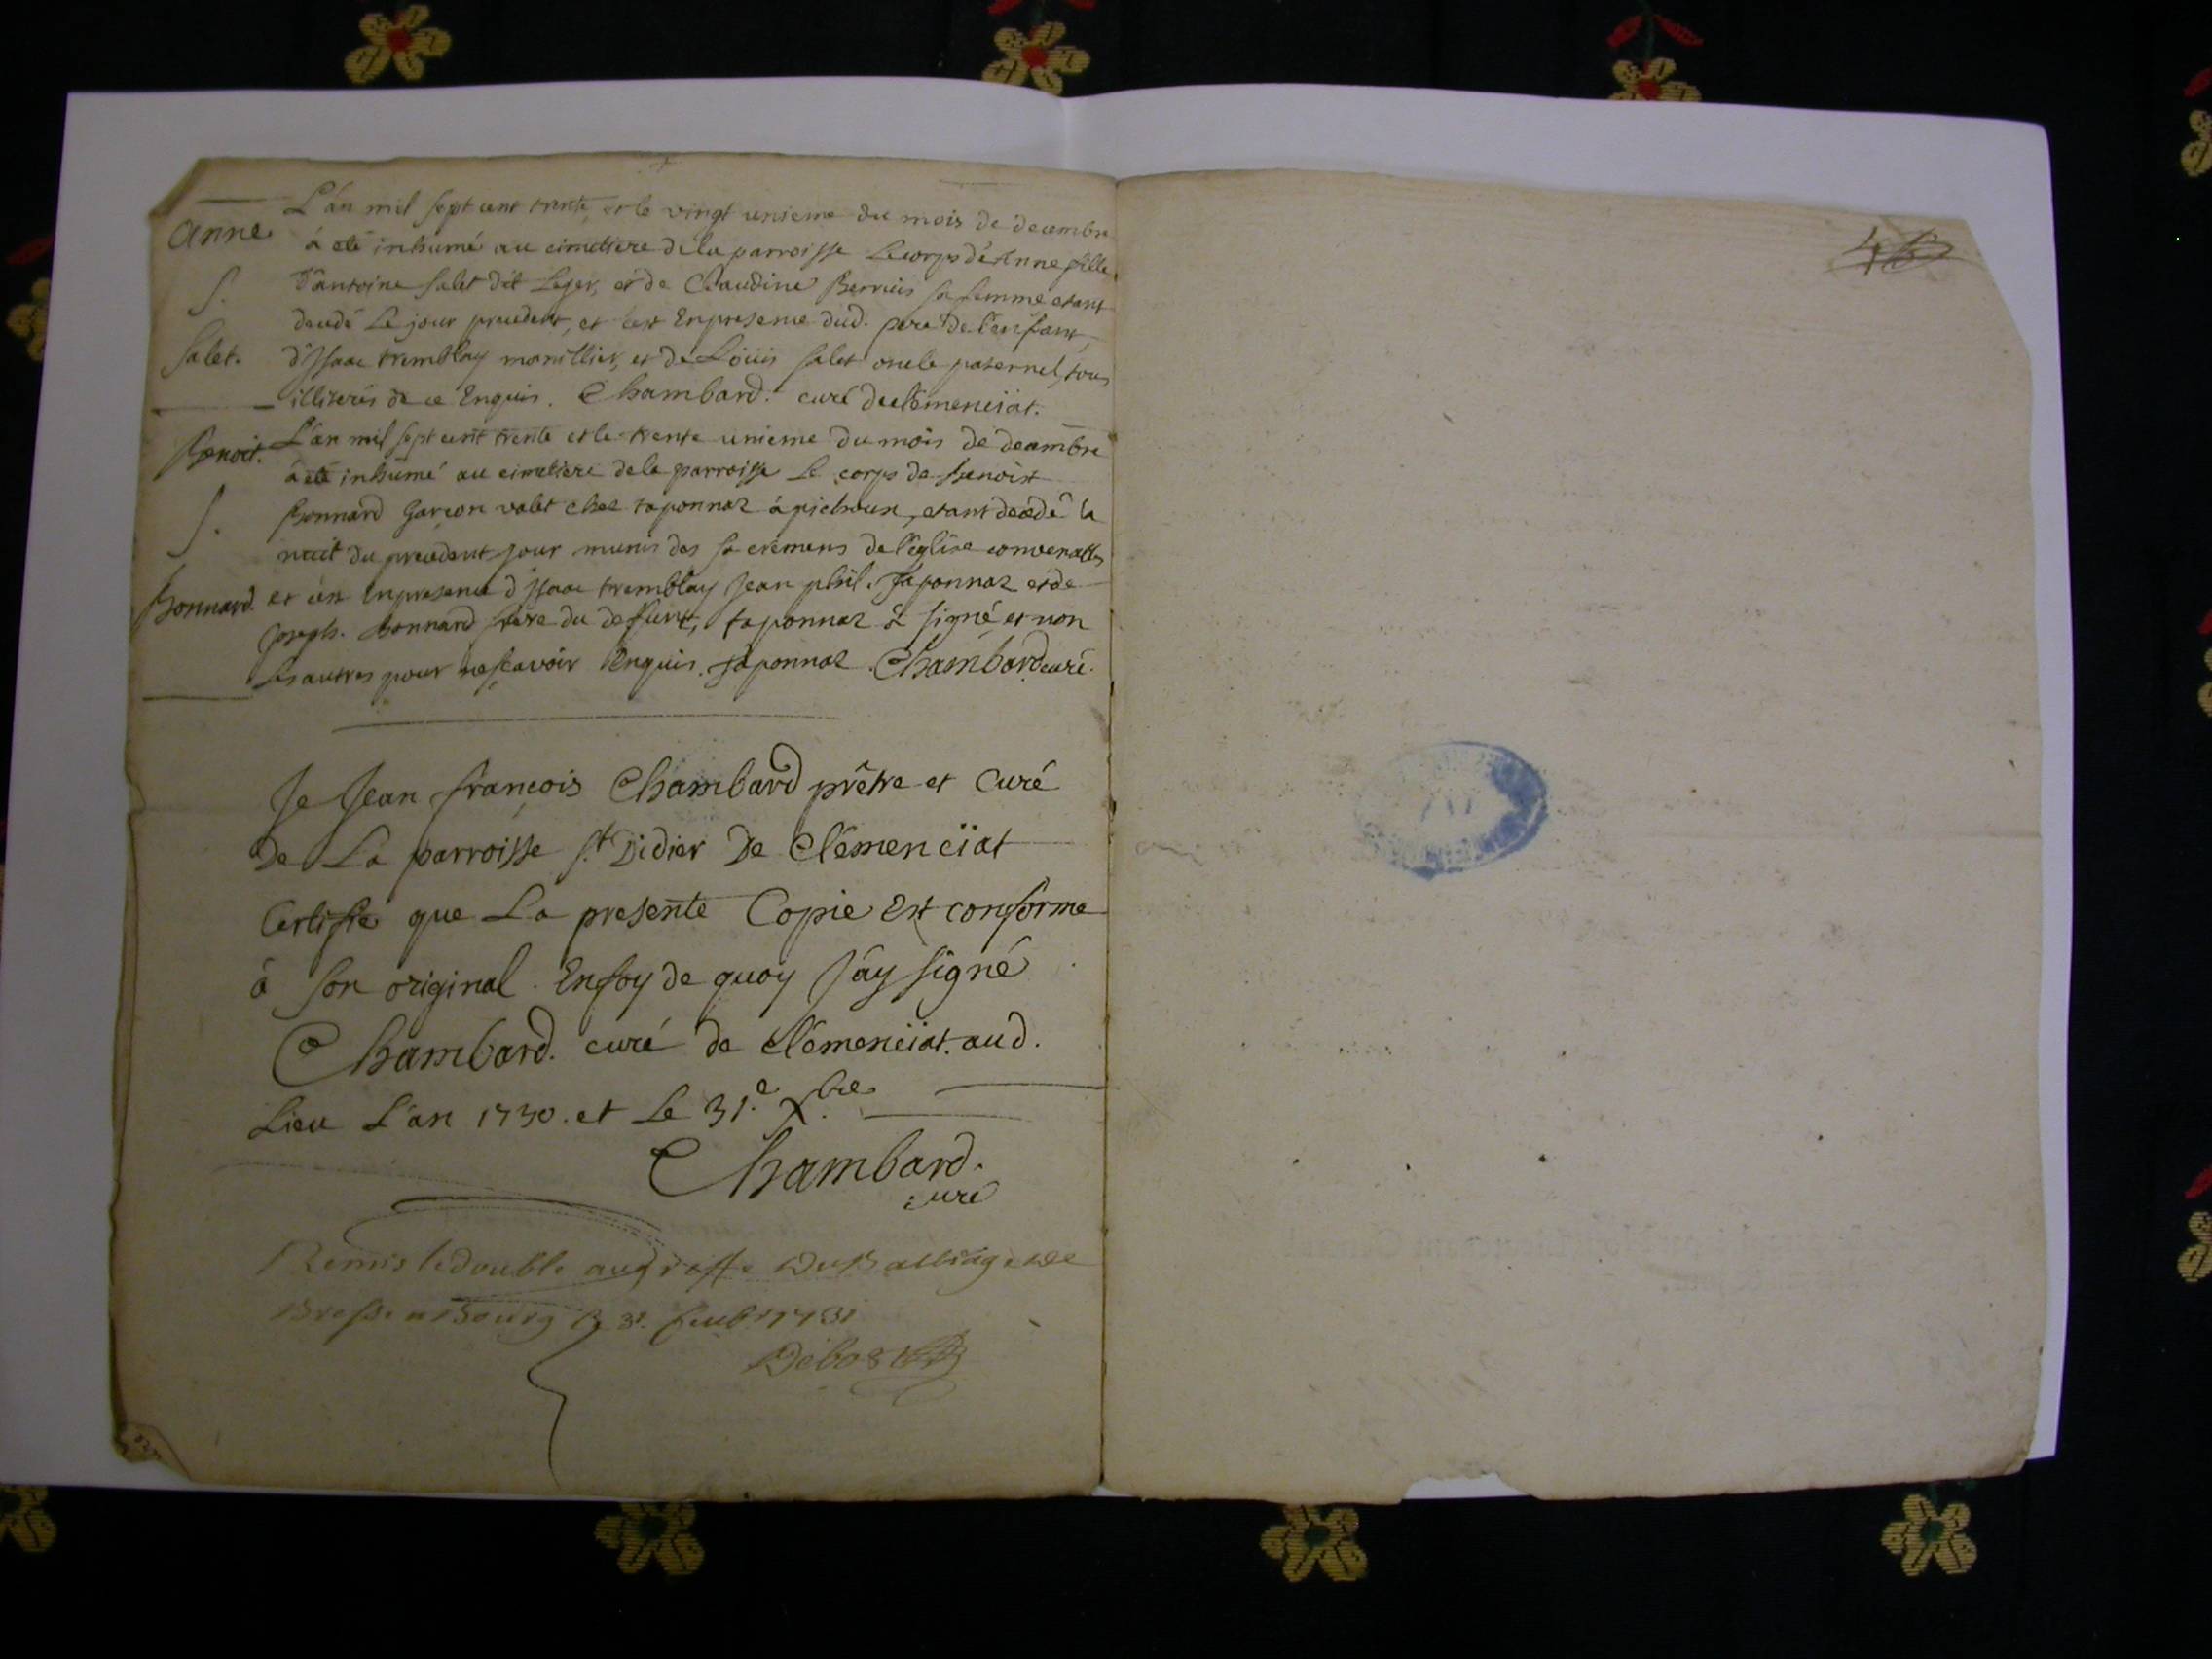 L'an mil sept cent trente, et le vingt unieme du mois de decembre
Anne à eté inhumé au cimetiere de la parroisse Le corps d'Anne fille
S. D'antoine Salet dit Leger, et de Claudine Berruis sa femme etant
decedé Le jour precedent, et c'est En presence dud. pere de l'enfant,
Salet. d'Isaac tremblay manillier, et de Loüis Salet oncle paternel, tous
illiterés de ce Enquis. Chambard. curé de Clemenciat.
Benoit. L'an mil sept cent trente et le trente unieme du mois de decembre
à eté inhumé au cimetiere de la parroisse Le corps de benoist
S. Bonnard Garçon valet chez taponnaz à pichoux, etant decedé la
nuit du precedent jour munis des sacremens de l'eglise convenables
Bonnard. et c'est En presence d'Isaac tremblay Jean phil. Taponnaz et de
Joseph. bonnard frere du defunt, taponnaz à signé et non
les autres pour ne sçavoir Enquis. Taponnaz. Chambard curé.
Je Jean françois Chambard prêtre et Curé
De La parroisse St Didier De Clémenciat
Certifie que La presente Copie Est conforme
à son original. En foy de quoy J'ay signé
Chambard. curé de Clémenciat. aud.
Lieu L'an 1730. et Le 31.e Xbre
Chambard.
curé
Remis le double au greffe Du Balliage De
Bresse a Bourg 1731
Debost